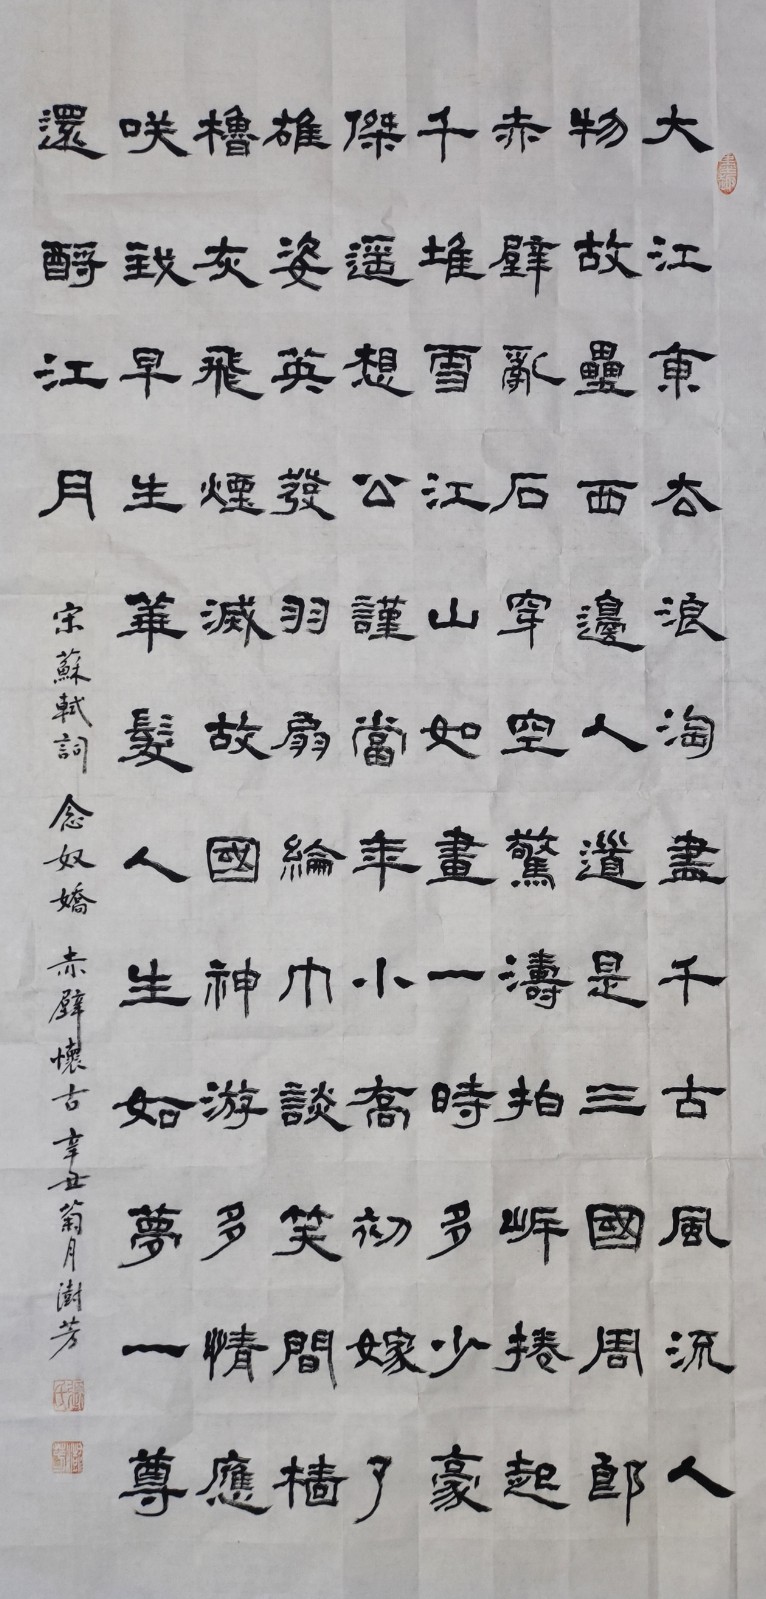 大江東去浪淘盡千古風流人
物故壘西邊人道是三國周郎
赤壁亂石穿空驚濤拍岸捲起
千堆雪江山如畫一時多少豪
傑遥想公謹當年小喬初嫁了
雄姿英發羽扇綸巾談笑間檣
櫓灰飛煙滅故國神游多情應
咲我早生華髮人生如夢一尊
還酹江月
宋蘇軾詞 念奴嬌 赤壁懷古 辛丑菊月澍芳